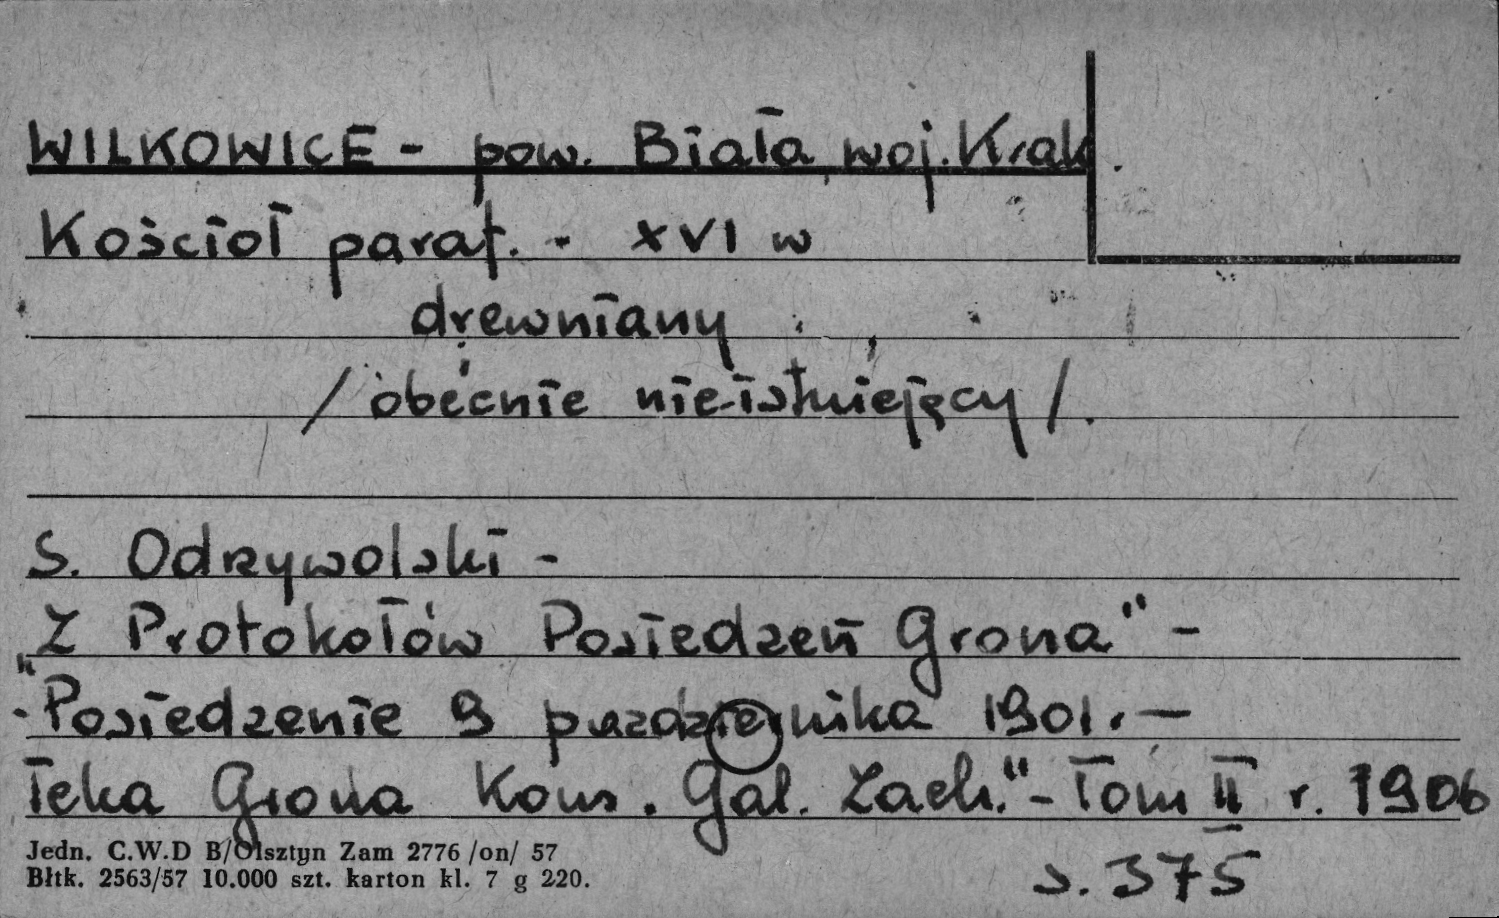 WILKOWICE - pow. Biała, woj. Krak.
Kościoł paraf. - XVI w
drewniany
/ obecnie nieistniejący /.
S. Odrzywolski -
"Z Protokołów Posiedzeń Grona" -
- Posiedzenie 9 października 1901. —
Teka Grona Kons. Gal. Zach." - Tom II r. 1906
s. 375
Jedn. C.W.D B/Olsztyn Zam 2776 /on/ 57
Błtk. 2563/57 10.000 szt. karton kl. 7 g 220.